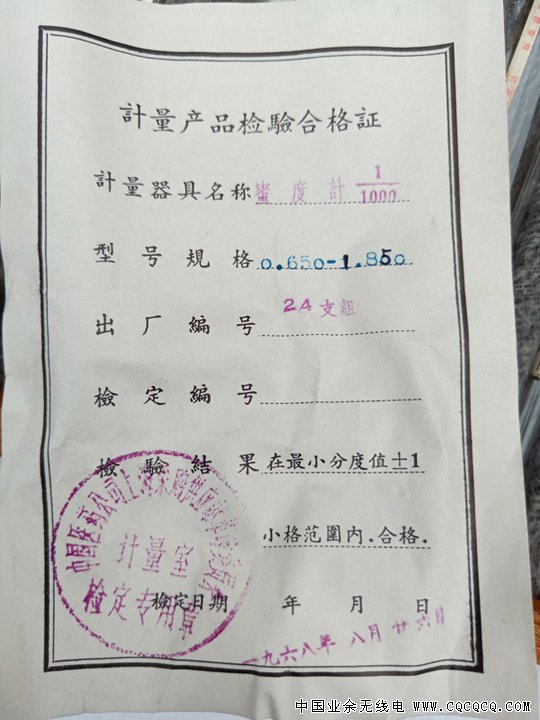 計量产品检驗合格証
計量器具名称 蜜度計 1/1000
型号規格 0.650-1.850
出厂編号 24支組
檢定編号
檢驗結果 在最小分度值±1
小格范圍内.合格.
檢定日期 年 月 日
一九六八年八月廿六日
中国医药公司上海
計量室
檢定专用章
中国业余无线电 www.cqcqcq.com